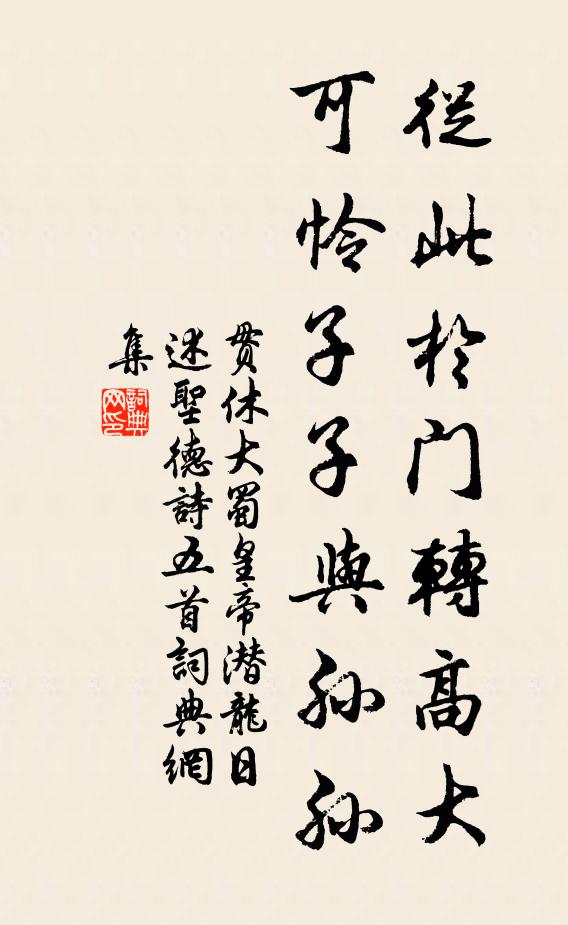 從此於門轉高大
可怜子子與孫孫
貫休大蜀皇帝潜龍日
述聖德詩五首詞典網
集
詞典网印